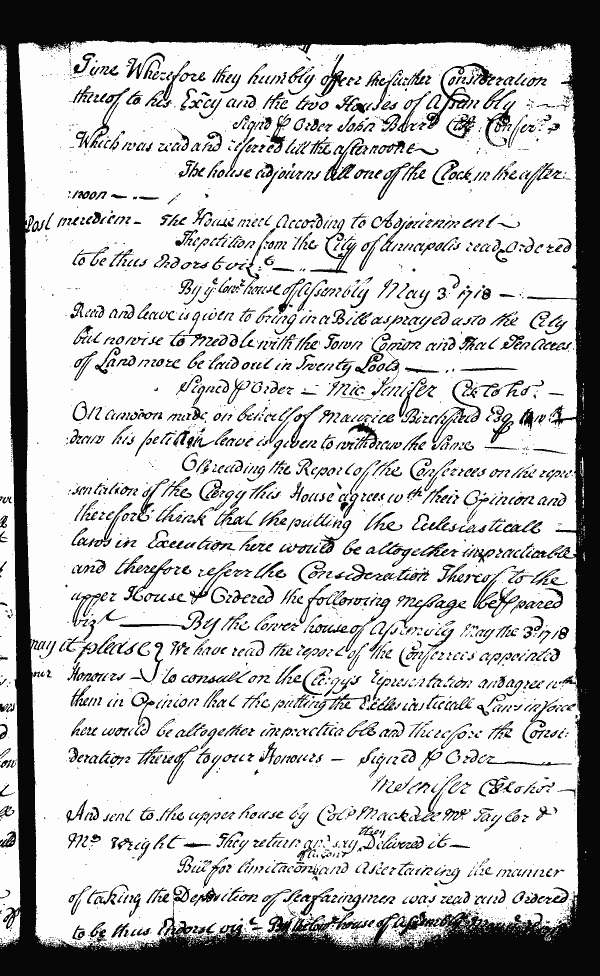 Tyme Wherefore they humbly offerr the further Consideration
thereof to his Excy and the two Houses of Assembly
Signd P Order John Beard Clk Confer.
Which was read and referred till the afternoone
The house adjourns till one of the Clock in the after
noon
Post merediem – The House meet According to Adjournment
The petition from the City of Annapolis read Ordered
to be thus Endorst viz.
By ye Lowr house of Assembly May 3d 1718
Read and leave is given to bring in a Bill as prayed as to the City
but no wise to Meddle with the Town Comon and That Ten Acres
of Land more be laid out in Twenty Lotts
Signed P Order – Mic Jenifer Clk lo ho.
On a motion made on behalf of Maurice Birchfeild Esq to
draw his petition leave is given to withdraw the Same
On reading the Report of the Conferrees on the repre
sentation of the Clergy this House agrees wth their Opinion and
therefore think that the putting the Eclesiasticall
laws in Execution here would be altogether impracticable
and therefore referr the Consideration Thereof to the
upper House & Ordered the following Message be prepared
vizt By the lower house of Assembly May the 3d 1718
may it please We have read the report of the Conferrees appointed
your Honours – to consult on the Clergys representation and agree wth
them in Opinion that the putting the Eclesiasticall Laws in force
here would be altogether impracticable and therefore the Consi
deration thereof to your Honours – Signed P Order
M Jenifer Clk lo hos
And sent to the upper house by Colo Mackall Mr Taylor &
Mr Wright – They return and say they Delivered it –
Bill for limitacon of accons and Ascertaining the manner
of taking the Deposition of Seafaringmen was read and Ordered
to be thus Endorst viz – By the Lowr house of Assembly